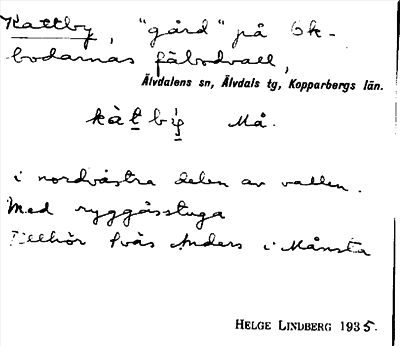 Kattby, "gård" på Ok-
bodarnas fäbodvall,
Älvdalens sn, Älvdals tg, Kopparbergs län.
kàt bý Må.
i nordvästra delen av vallen.
Med ryggåsstuga
Tillhör Anders i Månsta
HELGE LINDBERG 1935.